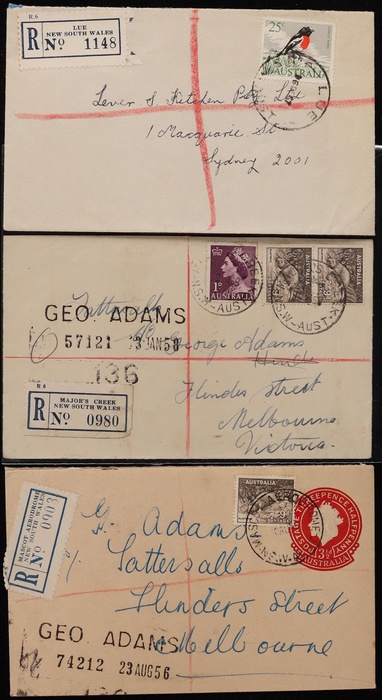 R 6
LUE
NEW SOUTH WALES
R No 1148
25c
AUSTRALIA
LUE
Lever & Kitchen Pty Ltd
1 Macquarie St
Sydney 2001
1D
AUSTRALIA
AUSTRALIA
AUSTRALIA
N.S.W-AUST
N.S.W-AUST
Tattersalls
GEO. ADAMS
57121 3 JAN 56
George Adams
136
Flinders Street
Melbourne
Victoria
R 6
MAJOR'S CREEK
NEW SOUTH WALES
R No 0980
MASCOT AERODROME
NEW SOUTH WALES
R No 0903
AUSTRALIA
POSTAGE THREEPENCE HALFPENNY
3½
AUSTRALIA
G. Adams
Tattersalls
Flinders Street
Melbourne
GEO. ADAMS
74212 23 AUG 56